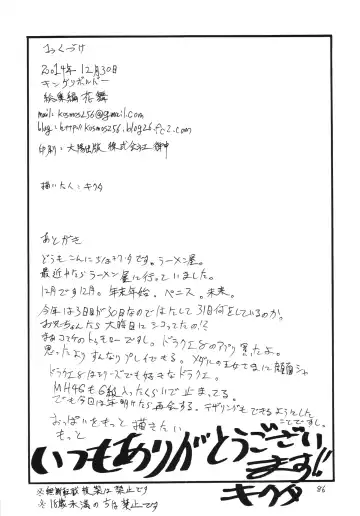 おくづけ
2014年12月30日
キングリボルバー
総集編 花舞
mail: kosmos256@gmail.com
blog: http://kosmos256.blog26.fc2.com
印刷：大陽出版 株式会社 御中
描いた人：キクタ
あとがき
どうもこんにちはキクタです。ラーメン屋。
最近やたらラーメン屋に行っていました。
12月です12月。年末年始。ペニス。未来。
今年は3日目が30日なのではたして31日何をしているのか。
お兄ちゃんたら大晦日に
です。ドラクエ8のアプリ買たよ。
思ったよりすんなりプレイできる。
ドラクエ8はシリーズでも好きなドラクエ。
MH4Gも6級入ったくらいで止まってる。
でも今回は年明けたら再会する。
おっぱいをもっと描きたい
もっと
いつもありがとうござい
ます!!
キクタ
※無断転載複製は禁止です
※18歳未満の方は禁止です
86